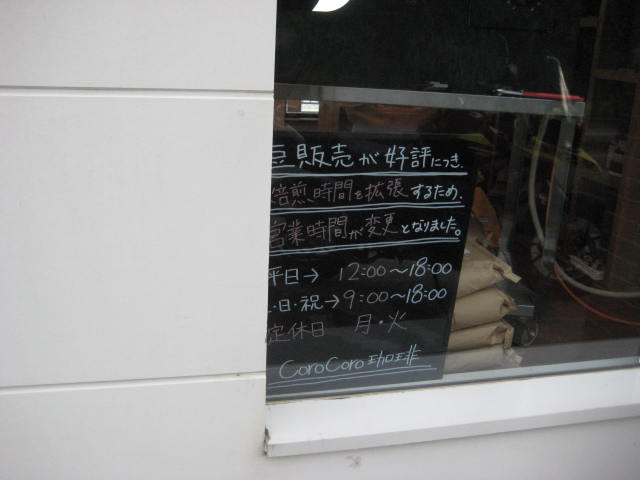 豆販売が好評につき.
焙煎時間を拡張するため.
営業時間が変更となりました。
平日→ 12:00〜18:00
・日・祝→9:00〜18:00
定休日 月・火
CoroCoro珈琲